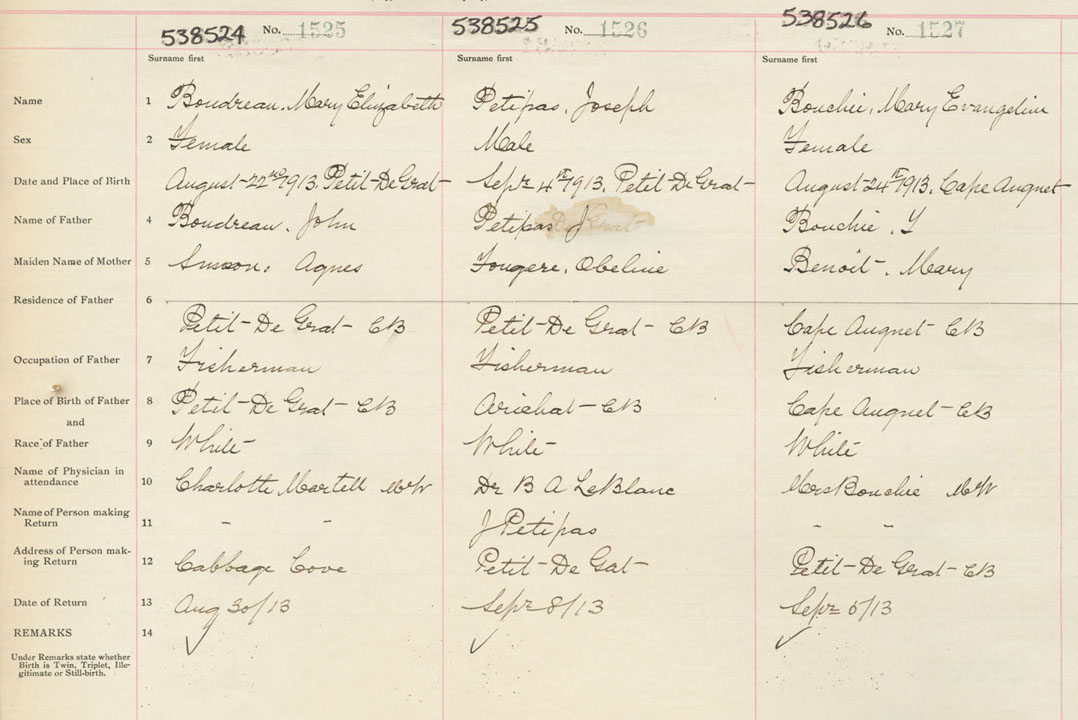 538524 No. 1525 538525 No. 1526 538526 No. 1527
Surname first Surname first Surname first
Name 1 Boudreau, Mary Elizabeth Petipas, Joseph Bouchie, Mary Evangeline
Sex 2 Female Male Female
Date and Place of Birth 3 August 22nd 1913, Petit-De Grat Sepr 4th 1913, Petit De Grat August 24th 1913, Cape Auguet
Name of Father 4 Boudreau, John Petipas J Bouchie, Y
Maiden Name of Mother 5 Samson, Agnes Fougere, Obeline Benoit, Mary
Residence of Father 6
Petit-De Grat CB Petit-De Grat CB Cape Auguet CB
Occupation of Father 7 Fisherman Fisherman Fisherman
Place of Birth of Father 8 Petit-De Grat CB Arichat CB Cape Auguet CB
and
Race of Father 9 White White White
Name of Physician in
attendance 10 Charlotte Martell MW Dr B A LeBlanc Mrs Bouchie MW
Name of Person making
Return 11 - - J Petipas - -
Address of Person mak-
ing Return 12 Cabbage Cove Petit-De Gat Petit-De Grat CB
Date of Return 13 Aug 30/13 Sepr 8/13 Sepr 5/13
REMARKS 14 ✓ ✓ ✓
Under Remarks state whether
Birth is Twin, Triplet, Ille-
gitimate or Still-birth.